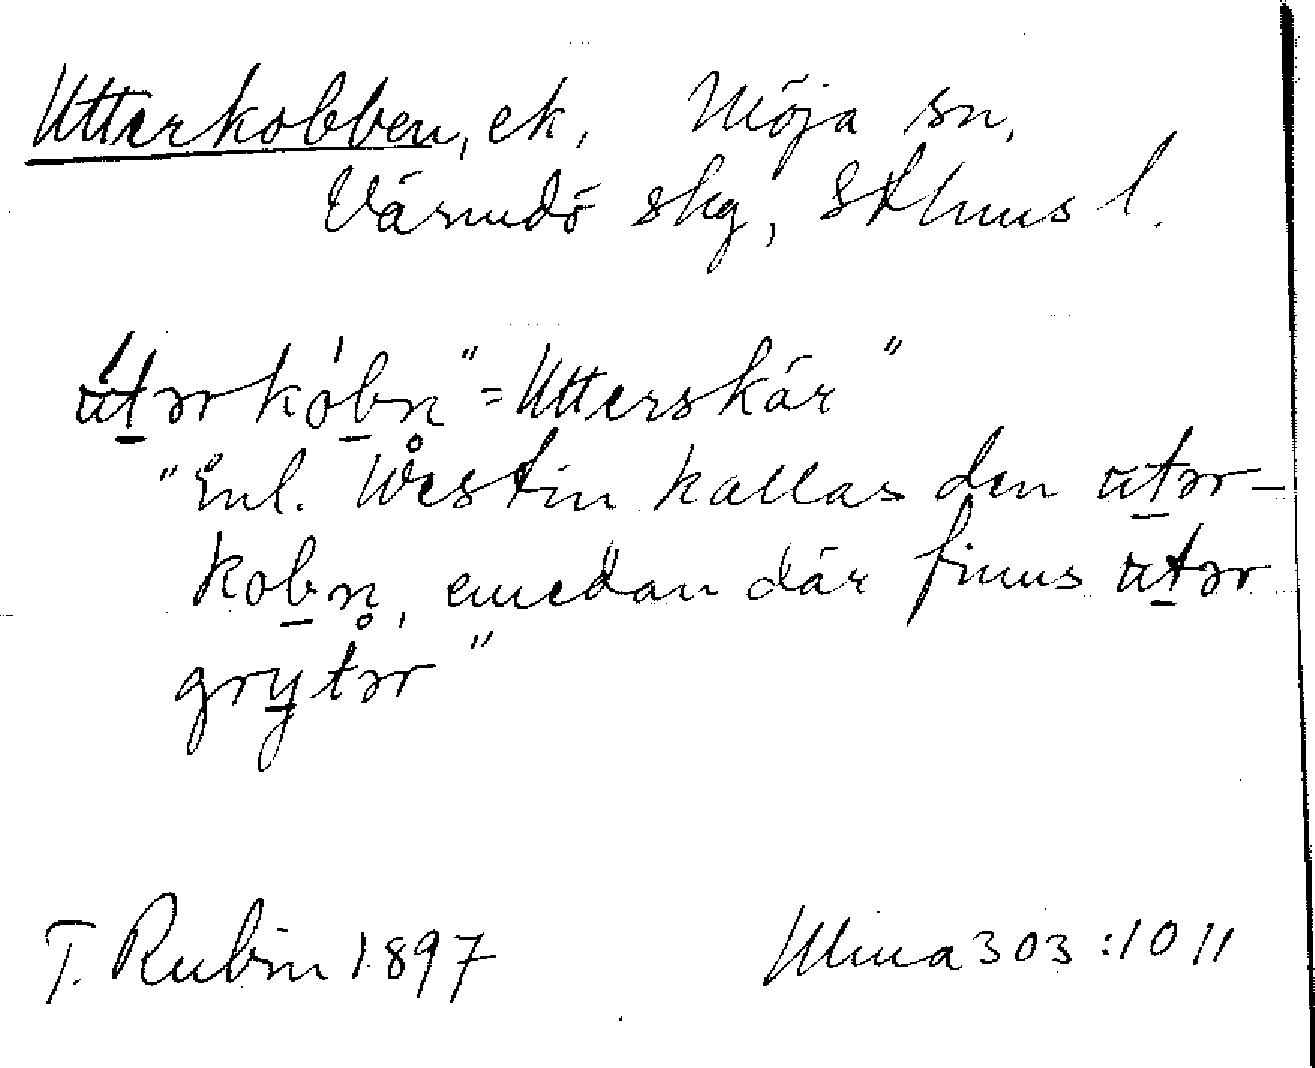 Utterkobben, ek, Möja sn,
Värmdö skg, Sthms l.
út̲ər kób̲n̥ "=Utterskär"
"Enl. Westin kallas den ut̲ər-
kob̲n̥, emedan där finns ut̲ər
gry̲tər"
T. Rubin 1897 Ulma 303:10 11